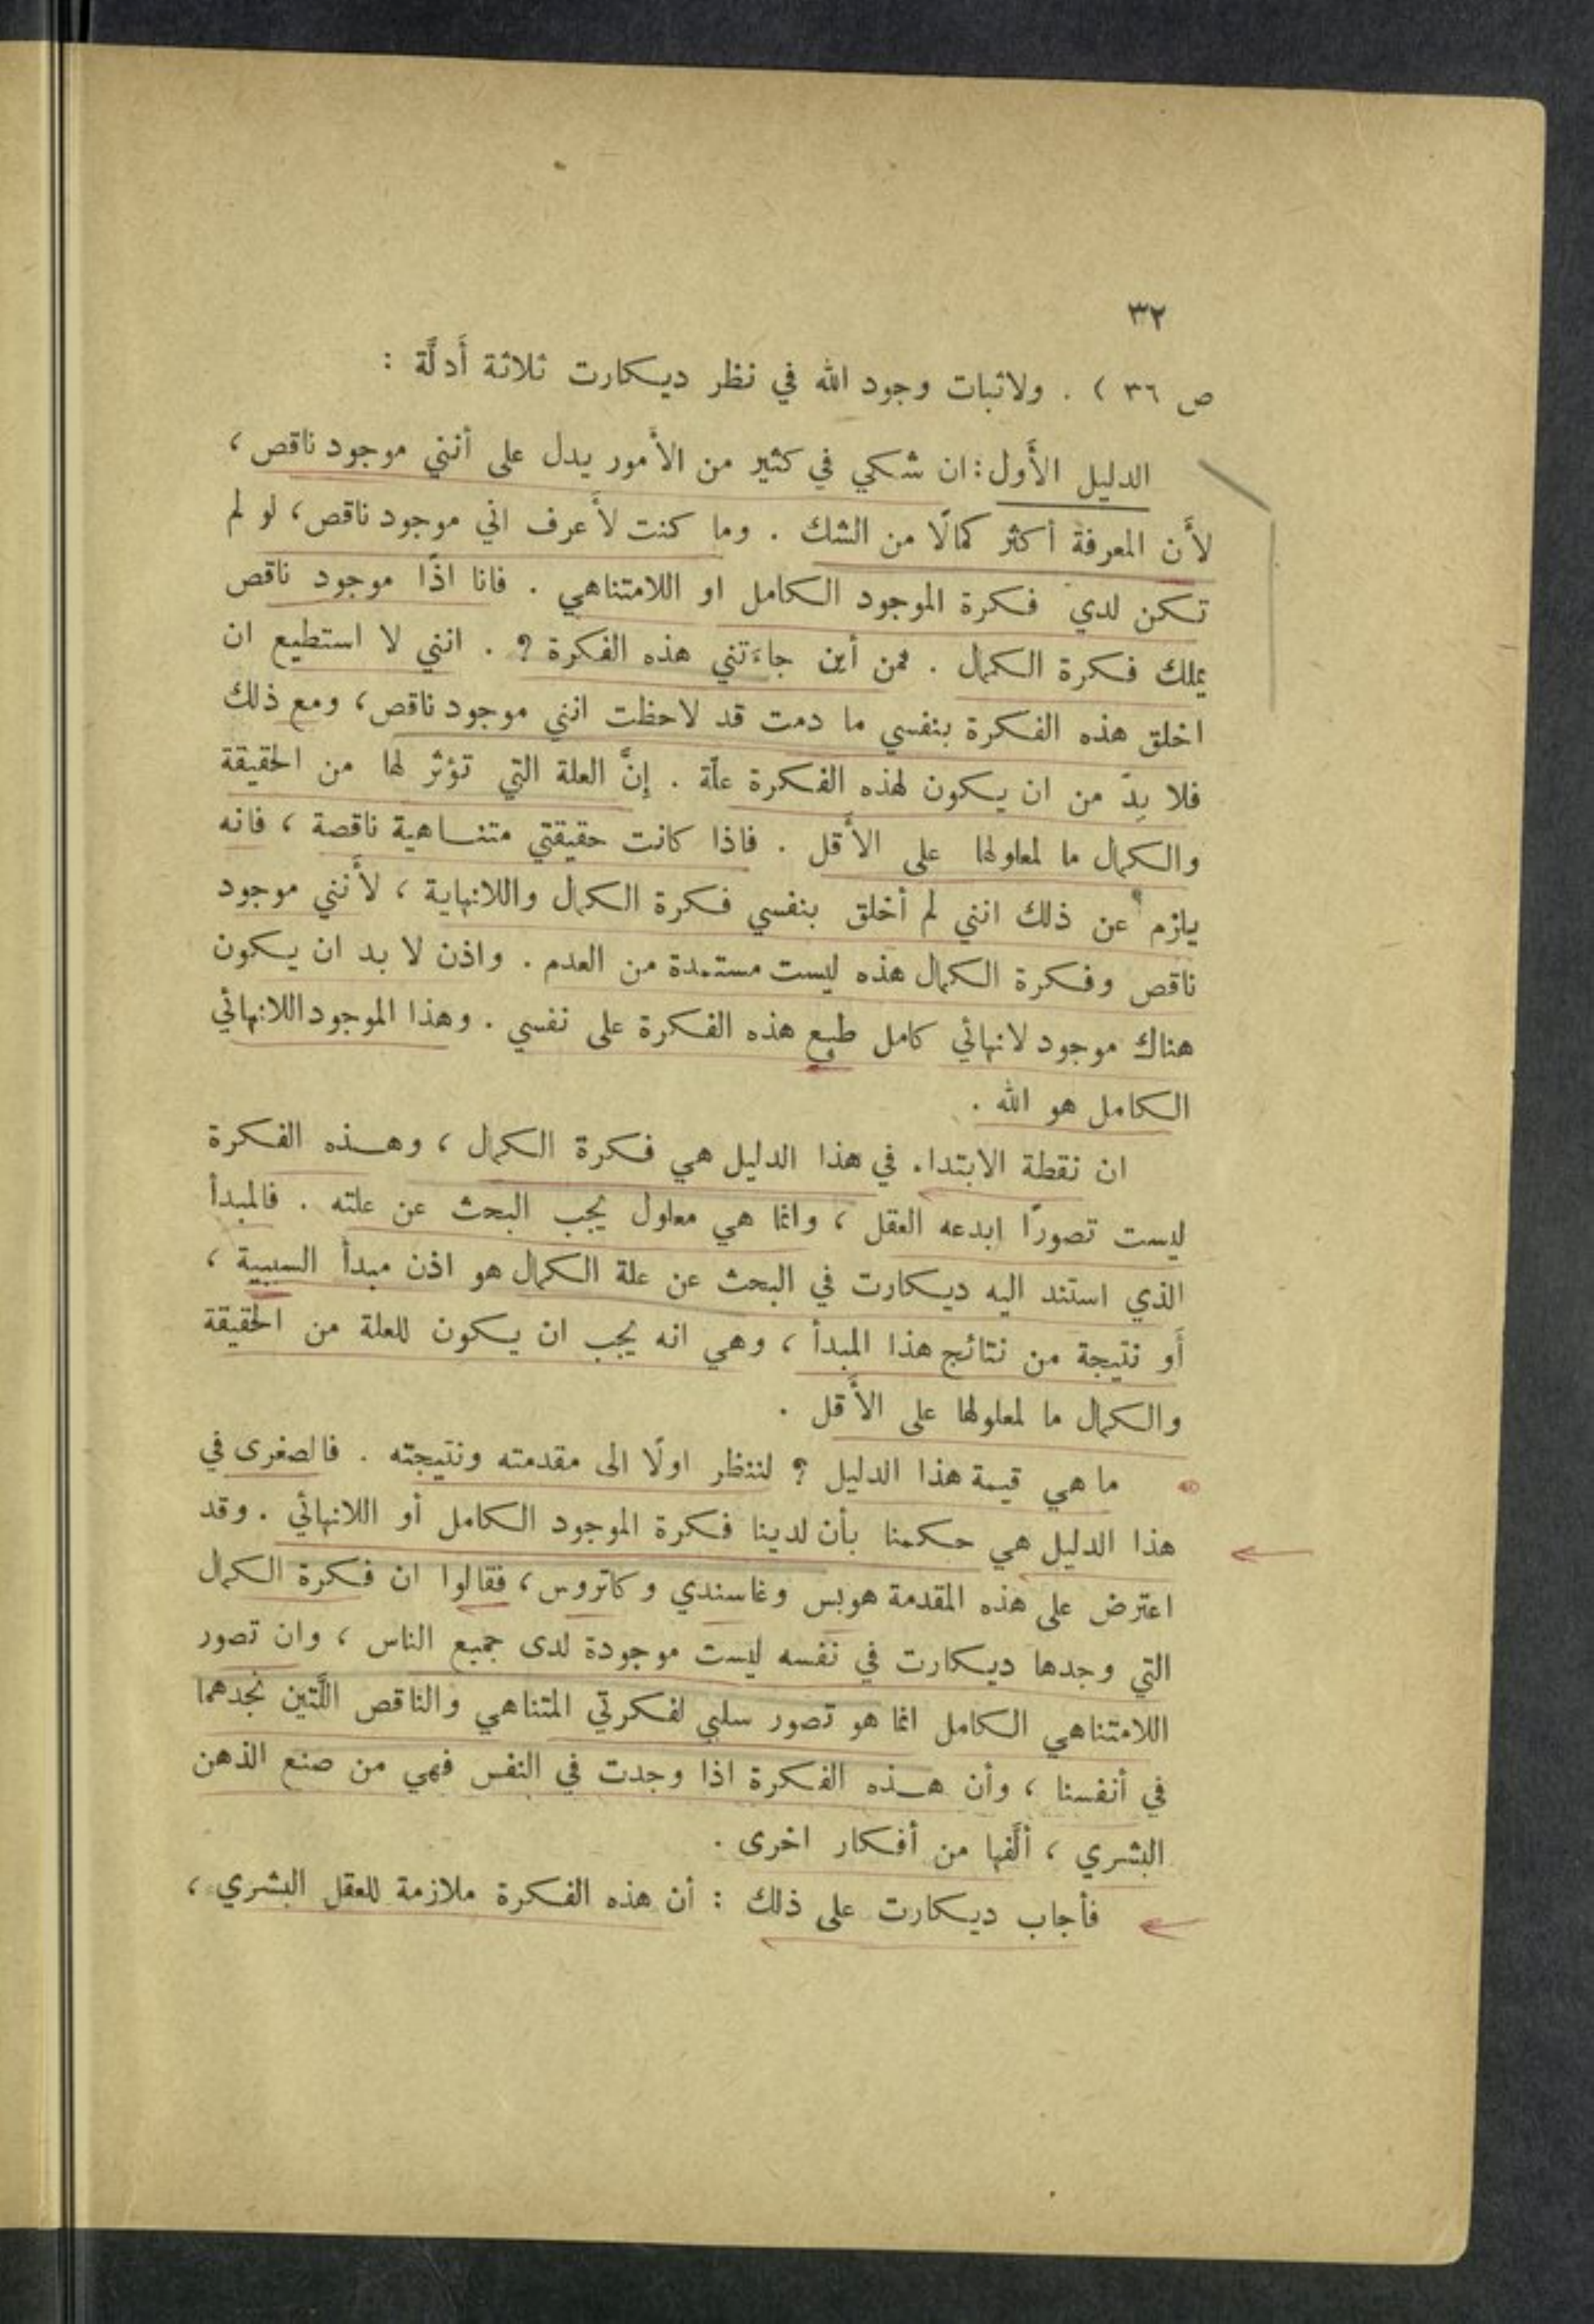 ٣٢
ص ٣٦ ) . ولاثبات وجود الله في نظر ديكارت ثلاثة أَدلَّة :
الدليل الأَول : ان شكي في كثير من الأمور يدل على أنني موجود ناقص ،
لأَن المعرفة أكثر كمالًا من الشك . وما كنت لأَعرف اني موجود ناقص ، لو لم
تكن لدي فكرة الموجود الكامل او اللامتناهي . فانا اذًا موجود ناقص
يملك فكرة الكمال . فمن أين جاءتني هذه الفكرة ؟ . انني لا استطيع ان
اخلق هذه الفكرة بنفسي ما دمت قد لاحظت انني موجود ناقص ، ومع ذلك
فلا بدّ من ان يكون لهذه الفكرة علّة . إنَّ العلة التي تؤثر لها من الحقيقة
والكمال ما لمعلولها على الأَقل . فاذا كانت حقيقتي متناهية ناقصة ، فانه
يلزم عن ذلك انني لم أخلق بنفسي فكرة الكمال واللانهاية ، لأَنني موجود
ناقص وفكرة الكمال هذه ليست مستمدة من العدم . واذن لا بد ان يكون
هناك موجود لانهائي كامل طبع هذه الفكرة على نفسي . وهذا الموجود اللانهائي
الكامل هو الله .
ان نقطة الابتداء في هذا الدليل هي فكرة الكمال ، وهذه الفكرة
ليست تصورًا ابدعه العقل ، وانما هي معلول يجب البحث عن علته . فالمبدأ
الذي استند اليه ديكارت في البحث عن علة الكمال هو اذن مبدأ السببية ،
أَو نتيجة من نتائج هذا المبدأ ، وهي انه يجب ان يكون للعلة من الحقيقة
والكمال ما لمعلولها على الأَقل .
ما هي قيمة هذا الدليل ؟ لننظر اولًا الى مقدمته ونتيجته . فالصغرى في
هذا الدليل هي حكمنا بأن لدينا فكرة الموجود الكامل أو اللانهائي . وقد
اعترض على هذه المقدمة هوبس وغاسندي وكاتروس ، فقالوا ان فكرة الكمال
التي وجدها ديكارت في نفسه ليست موجودة لدى جميع الناس ، وان تصور
اللامتناهي الكامل انما هو تصور سلبي لفكرتي المتناهي والناقص اللَّتين نجدهما
في أنفسنا ، وأن هذه الفكرة اذا وجدت في النفس فهي من صنع الذهن
البشري ، ألَّفها من أفكار اخرى .
فأجاب ديكارت على ذلك : أن هذه الفكرة ملازمة للعقل البشري ،